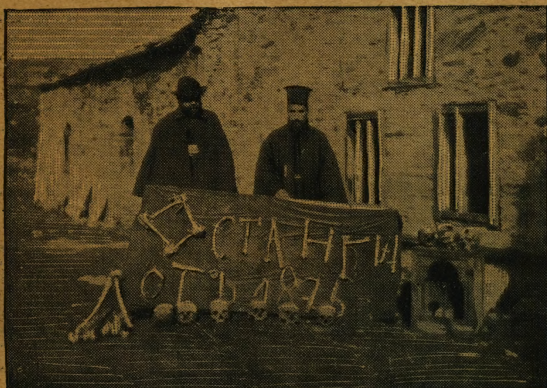 ОСТАНГИ
ОТЪ 1876